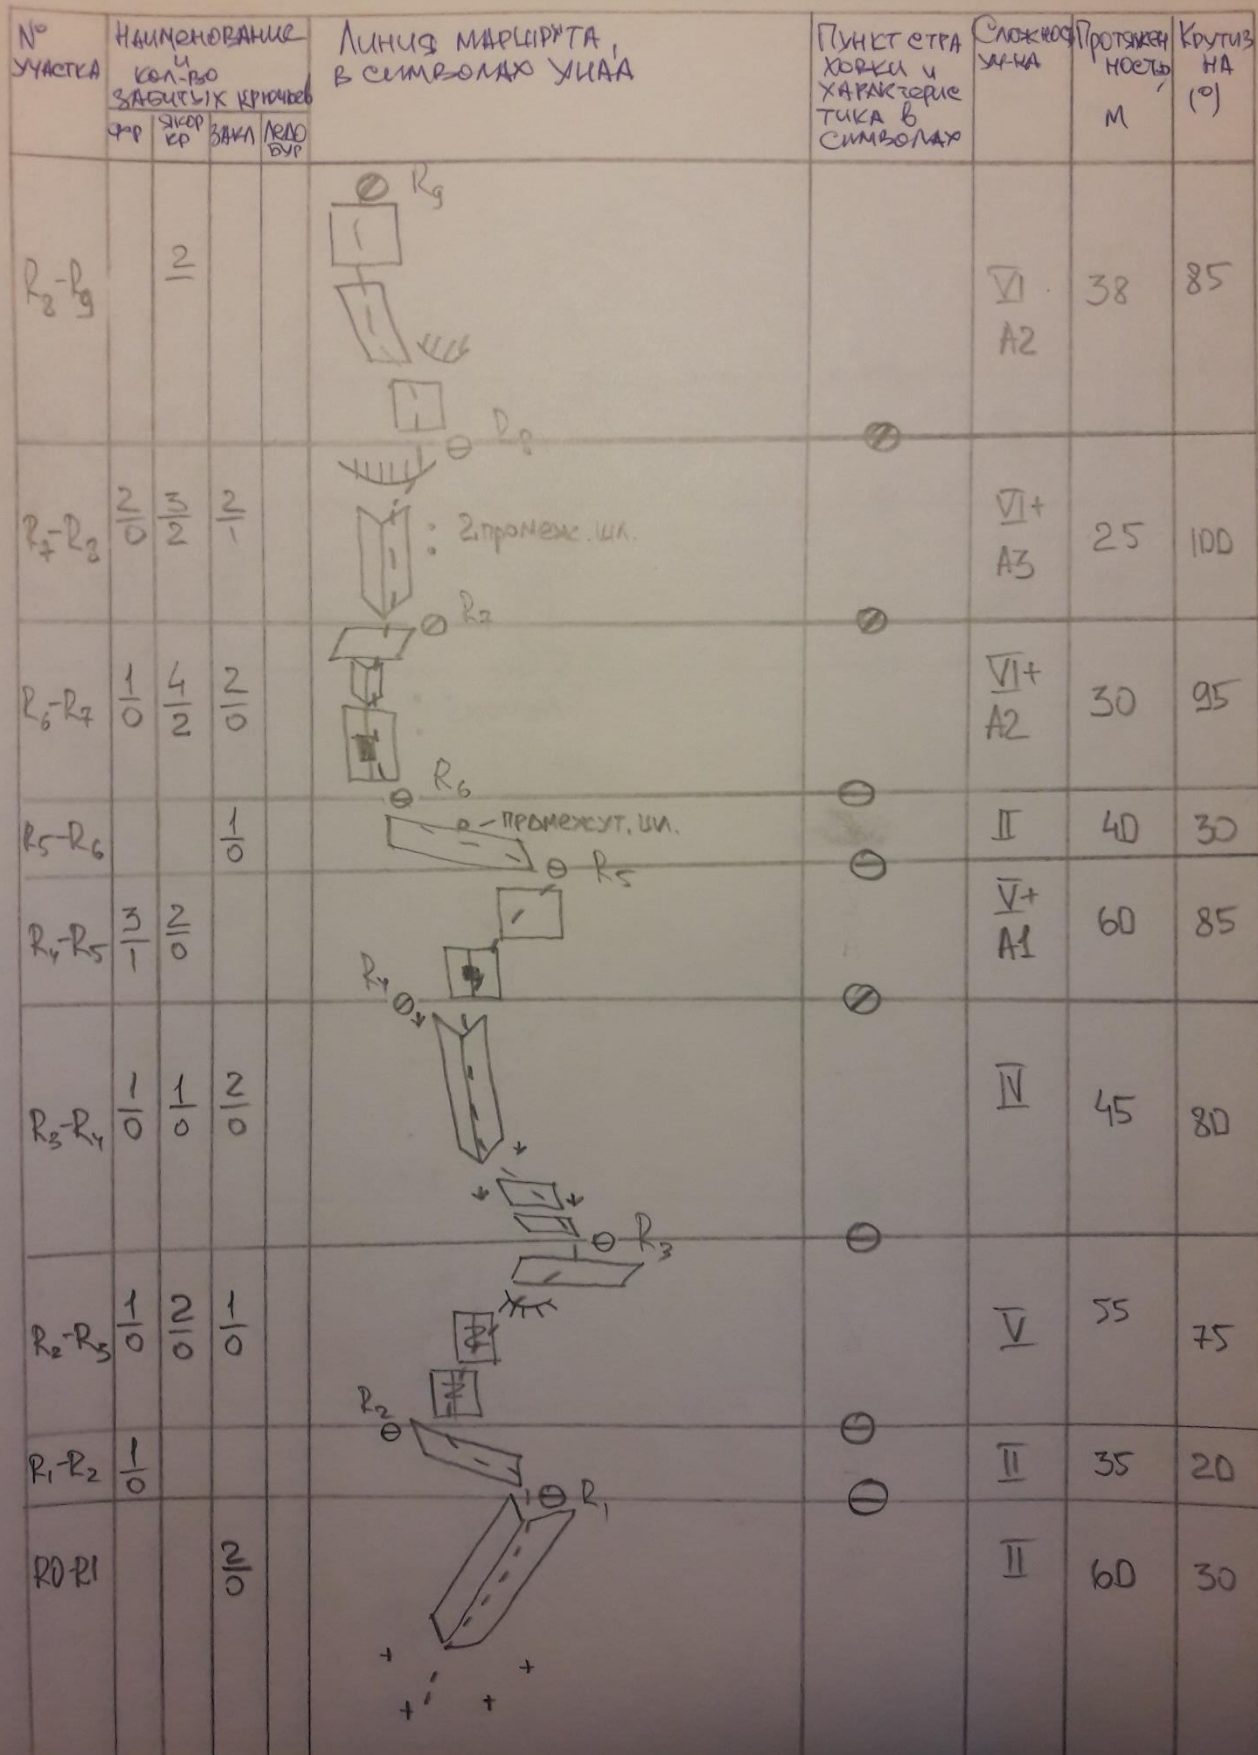 №
УЧАСТКА
НАИМЕНОВАНИЕ
И
КОЛ-ВО
ЗАБИТЫХ КРЮЧЬЕВ
ЯКОР
КР
ЗАКЛ
ЛЕДО
БУР
ЛИНИЯ МАРШРУТА,
В СИМВОЛАХ УИАА
ПУНКТ СТРА
ХОВКИ И
ХАРАКТЕРИС
ТИКА В
СИМВОЛАХ
УЧ-КА
ПРОТЯЖЕН
НОСТЬ,
М
КРУТИЗ
НА
(°)
R8-R9
2
R9
VI
A2
38
85
R8
R7-R8
2/0
3/2
2/1
2 промеж. шл.
VI+
A3
25
100
R7
R6-R7
1/0
4/2
2/0
VI+
A2
30
95
R6
R5-R6
1/0
ПРОМЕЖУТ. ШЛ.
II
40
30
R5
R4-R5
3/1
2/0
V+
A1
60
85
R4
R3-R4
1/0
1/0
2/0
IV
45
80
R3
R2-R3
1/0
2/0
1/0
V
55
75
R2
R1-R2
1/0
II
35
20
R1
R0-R1
2/0
II
60
30